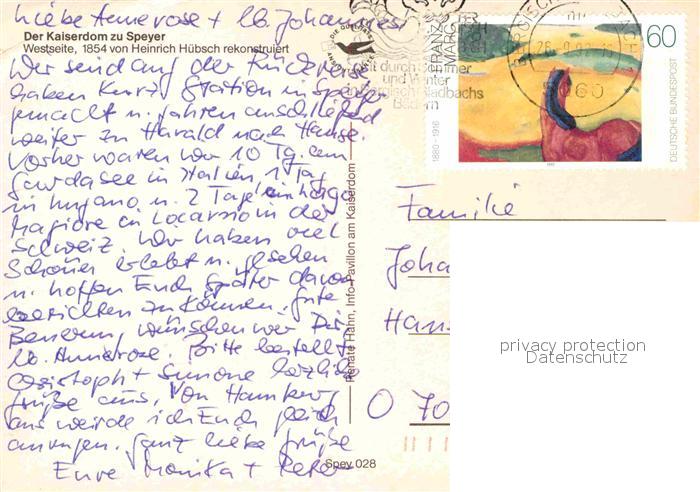 Liebe Annerose + lb. Johannes!
Der Kaiserdom zu Speyer
Westseite, 1854 von Heinrich Hübsch rekonstruiert
Wir sind auf der Rückreise
haben kurz Station in Speyer
gemacht u. fahren anschließend
weiter zu Harald nach Hause.
Vorher waren wir 10 Tg. am
Gardasee in Italien 1 Tag
in Lugano u. 2 Tage am Lago
Magiore in Locarno in der
Schweiz. Wir haben viel
Schönes erlebt u. gesehen
u. hoffen Euch später davon
berichten zu können. Gute
Besserung wünschen wir Dir
lb. Annerose. Bitte bestellt
Christoph + Simone herzliche
Grüße aus. Von Hamburg
aus werde ich Euch gleich
anrufen. Ganz liebe Grüße
Eure Monika + Peter
Renate Hahn, Info-Pavillon am Kaiserdom
Spey 028
und Winter
FRANZ MARC
1880 - 1916
60
DEUTSCHE BUNDESPOST
Familie
Joha
Hans
O 70
privacy protection
Datenschutz